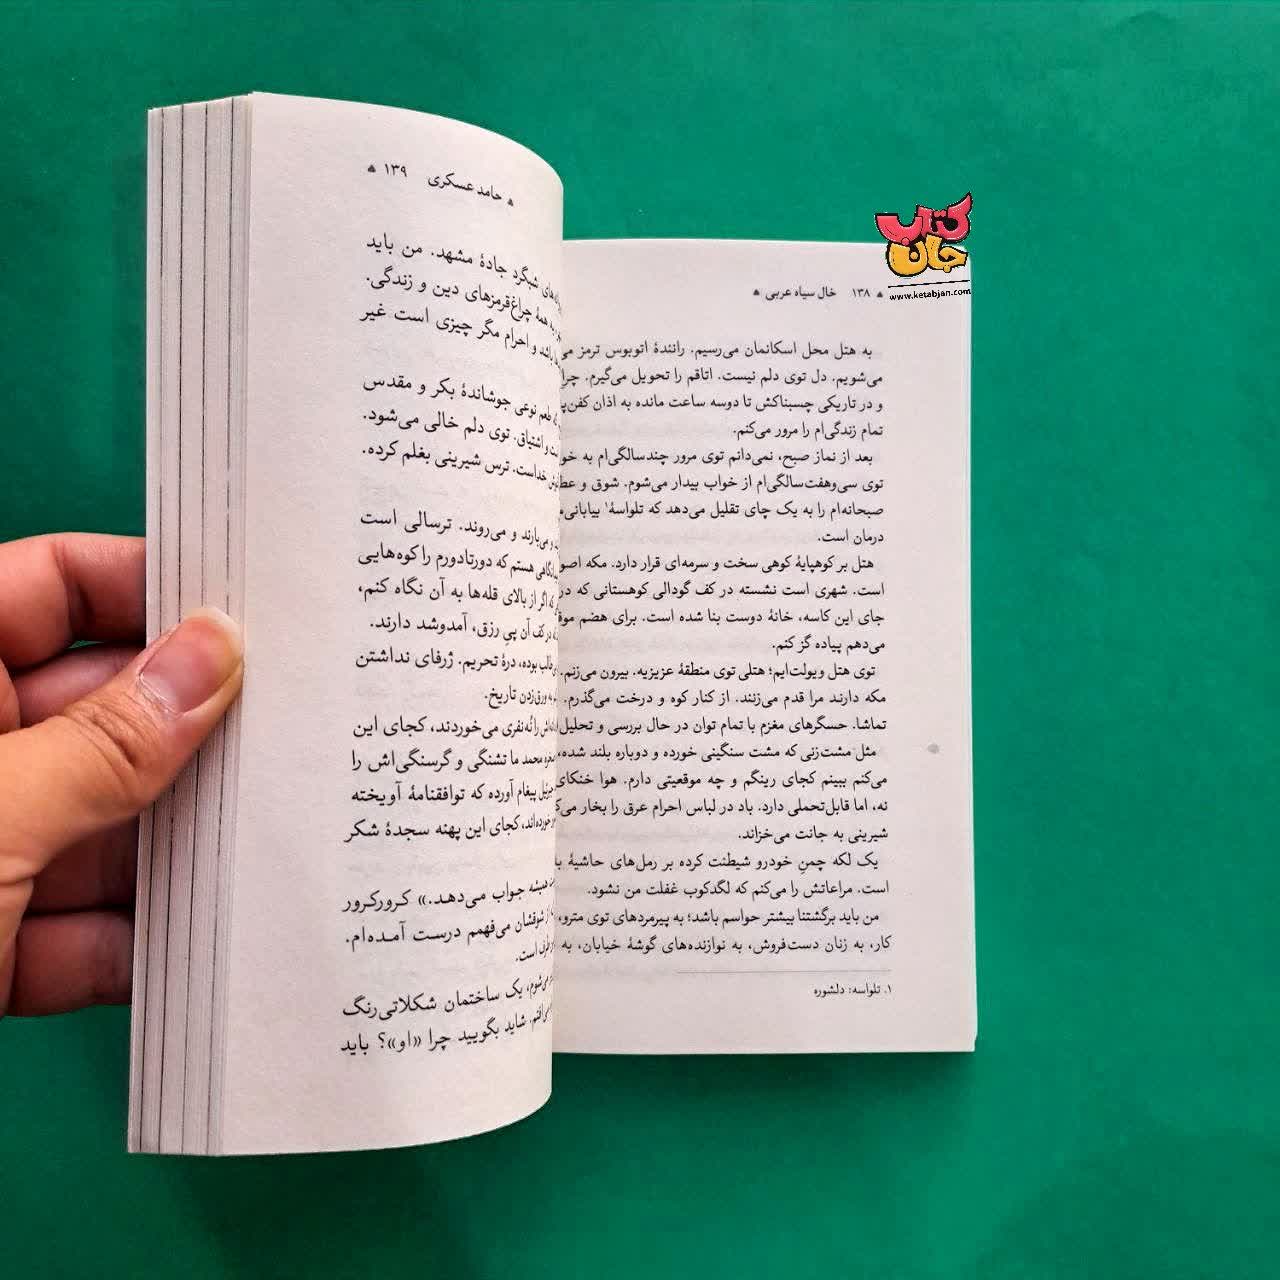 کتاب
جان
www.ketabjan.com
۱۳۸ خال سیاه عربی
به هتل محل اسکانمان می‌رسیم. رانندهٔ اتوبوس ترمز
می‌شویم. دل توی دلم نیست. اتاقم را تحویل می‌گیرم.
و در تاریکی چسبناکش تا دوسه ساعت مانده به اذان
تمام زندگی‌ام را مرور می‌کنم.
بعد از نماز صبح، نمی‌دانم توی مرور چندسالگی‌ام به
توی سی‌وهفت‌سالگی‌ام از خواب بیدار می‌شوم. شوق و
صبحانه‌ام را به یک چای تقلیل می‌دهد که تلواسهٔ۱
درمان است.
هتل بر کوهپایهٔ کوهی سخت و سرمه‌ای قرار دارد. مکه
است. شهری است نشسته در کف گودالی کوهستانی که در
جای این کاسه، خانهٔ دوست بنا شده است. برای هضم
می‌دهم پیاده گز کنم.
توی هتل ویولت‌ایم؛ هتلی توی منطقهٔ عزیزیه. بیرون می‌زنم.
مکه دارند مرا قدم می‌زنند. از کنار کوه و درخت می‌گذرم.
تماشا. حسگرهای مغزم با تمام توان در حال بررسی و تحلیل
مثل مشت‌زنی که مشت سنگینی خورده و دوباره بلند شده،
می‌کنم ببینم کجای رینگم و چه موقعیتی دارم. هوا خنکای
نه، اما قابل‌تحملی دارد. باد در لباس احرام عرق را بخار
شیرینی به جانت می‌خزاند.
یک لکه چمنِ خودرو شیطنت کرده بر رمل‌های حاشیهٔ
است. مراعاتش را می‌کنم که لگدکوب غفلت من نشود.
من باید برگشتنا بیشتر حواسم باشد؛ به پیرمردهای توی مترو،
کار، به زنان دست‌فروش، به نوازنده‌های گوشهٔ خیابان، به
۱. تلواسه: دلشوره
حامد عسکری ۱۳۹
شبگرد جادهٔ مشهد. من باید
همهٔ چراغ‌قرمزهای دین و زندگی.
باشد و احرام مگر چیزی است غیر
طعم نوعی جوشاندهٔ بکر و مقدس
و اشتیاق. توی دلم خالی می‌شود.
خداست. ترس شیرینی بغلم کرده.
و می‌بارند و می‌روند. ترسالی است
هستم که دورتادورم را کوه‌هایی
که اگر از بالای قله‌ها به آن نگاه کنم،
در کف آن پیِ رزق، آمدوشد دارند.
بوده، درهٔ تحریم. ژرفای نداشتن
به ورق‌زدن تاریخ.
را نُه‌نفری می‌خوردند، کجای این
محمد ما تشنگی و گرسنگی‌اش را
پیغام آورده که توافقنامهٔ آویخته
خورده‌اند، کجای این پهنه سجدهٔ شکر
همیشه جواب می‌دهد.» کرورکرور
از شوقشان می‌فهمم درست آمده‌ام.
است.
می‌شوم، یک ساختمان شکلاتی‌رنگ
شاید بگویید چرا «او»؟ باید